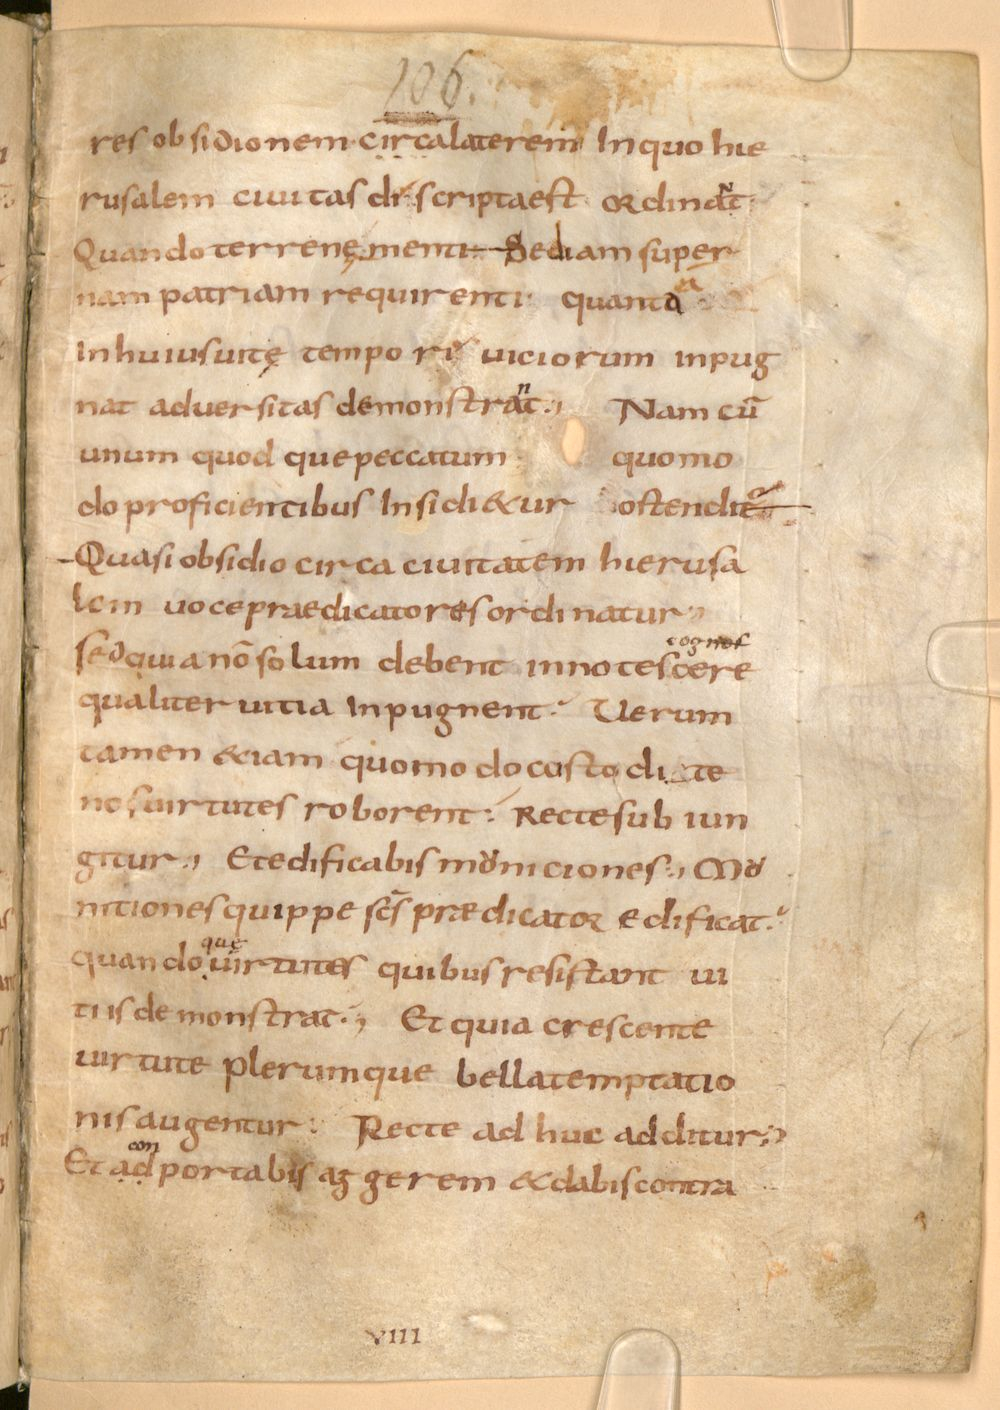 106.
res obsidionem circa laterem In quo hie
rusalem ciuitas discripta est ordināt
Quando terrenę menti Sed iam super
nam patriam requirenti quanta
In huius uitę temporis uiciorum inpug
nat aduersitas demonstrant. Nam cū
unum quod que peccatum quomo
do proficientibus Insidi&ur ostendit
Quasi obsidio circa ciuitatem hierusa
lem uoce praedicatores ordinatur
sed quia nō solum debent innotescere
cognos
qualiter uitia Inpugnent. Uerum
tamen &iam quomodo custodite
nos uirtutes roborent. Recte sub iun
gitur, Et edificabis municiones, Mu
nitiones quippe scs̄ prædicator edificat.
quando quę uirtutes quibus resistant ui
tiis demonstrat, Et quia crescente
uirtute plerumque bella temptatio
nis augentur. Recte ad huc additur,
con
Et adportabis aggerem & dabis contra
VIII